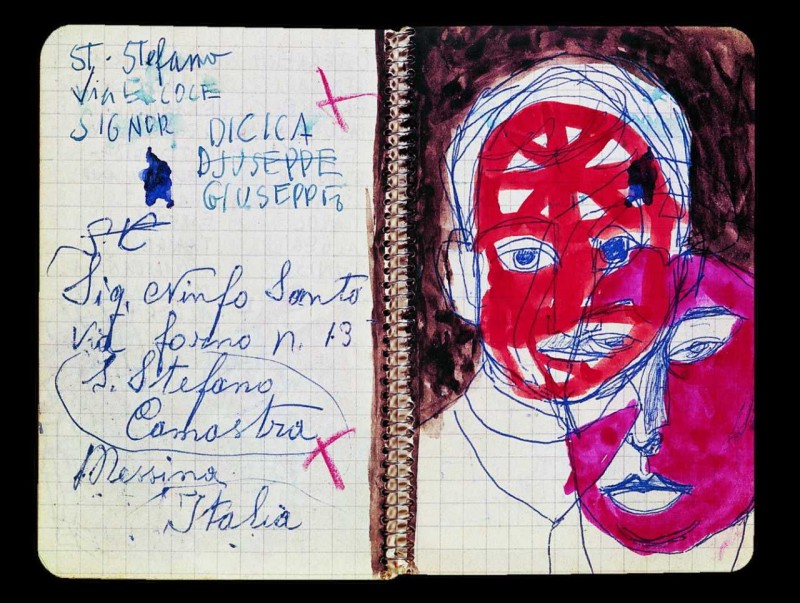 ST. Stefano
Via
SIGNOR DICICA
DJUSEPPE
GIUSEPPE
Sig. Ninfo Santo
via forno n. 13
S. Stefano
Camastra
Messina
Italia